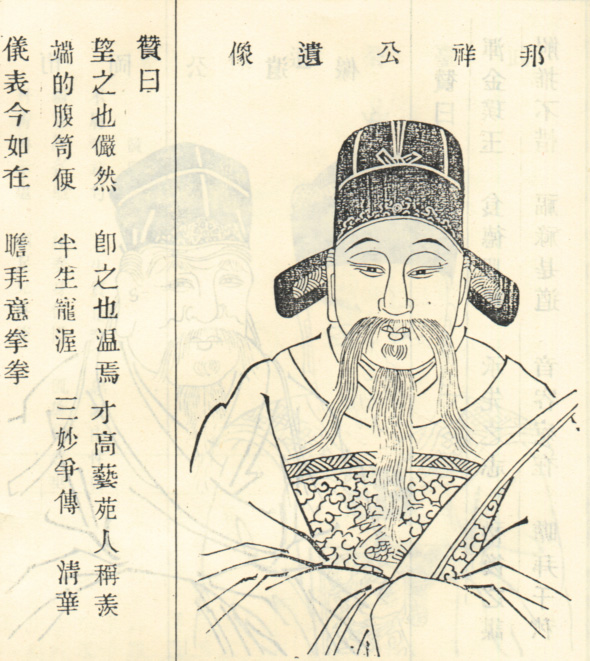 邦祥公遺像
贊曰
望之也儼然 卽之也温焉 才高藝苑人稱羨
端的腹笥便 半生寵渥 三妙爭傳 淸華
儀表今如在 瞻拜意拳拳